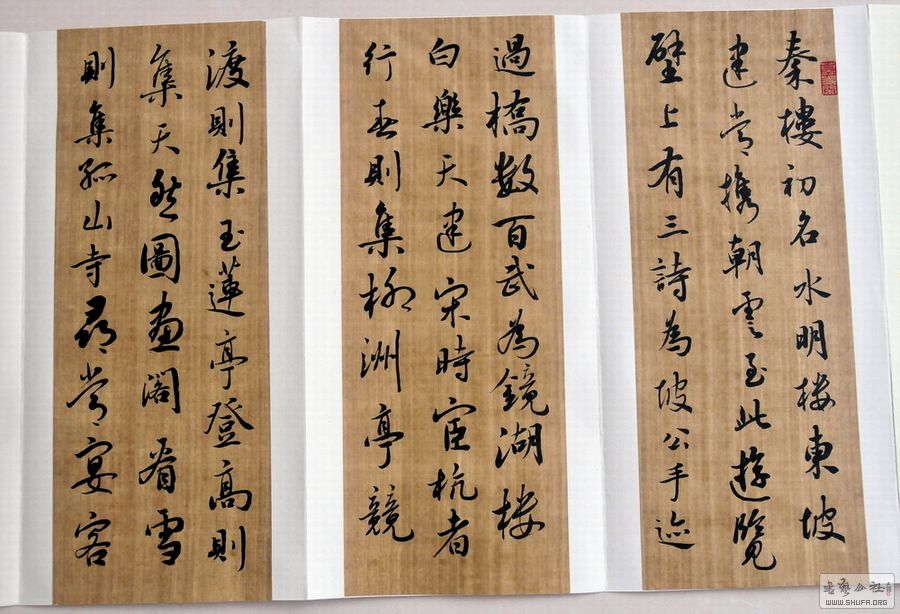 秦樓初名水明楼東坡
建常携朝雲至此遊覧
壁上有三詩為坡公手迹
過橋数百武為鏡湖楼
白樂天建宋時宦杭者
行春則集柳洲亭競
渡則集玉蓮亭登高則
集天然圖畫閣看雪
則集孤山寺尋常宴客
WWW.SHUFA.ORG